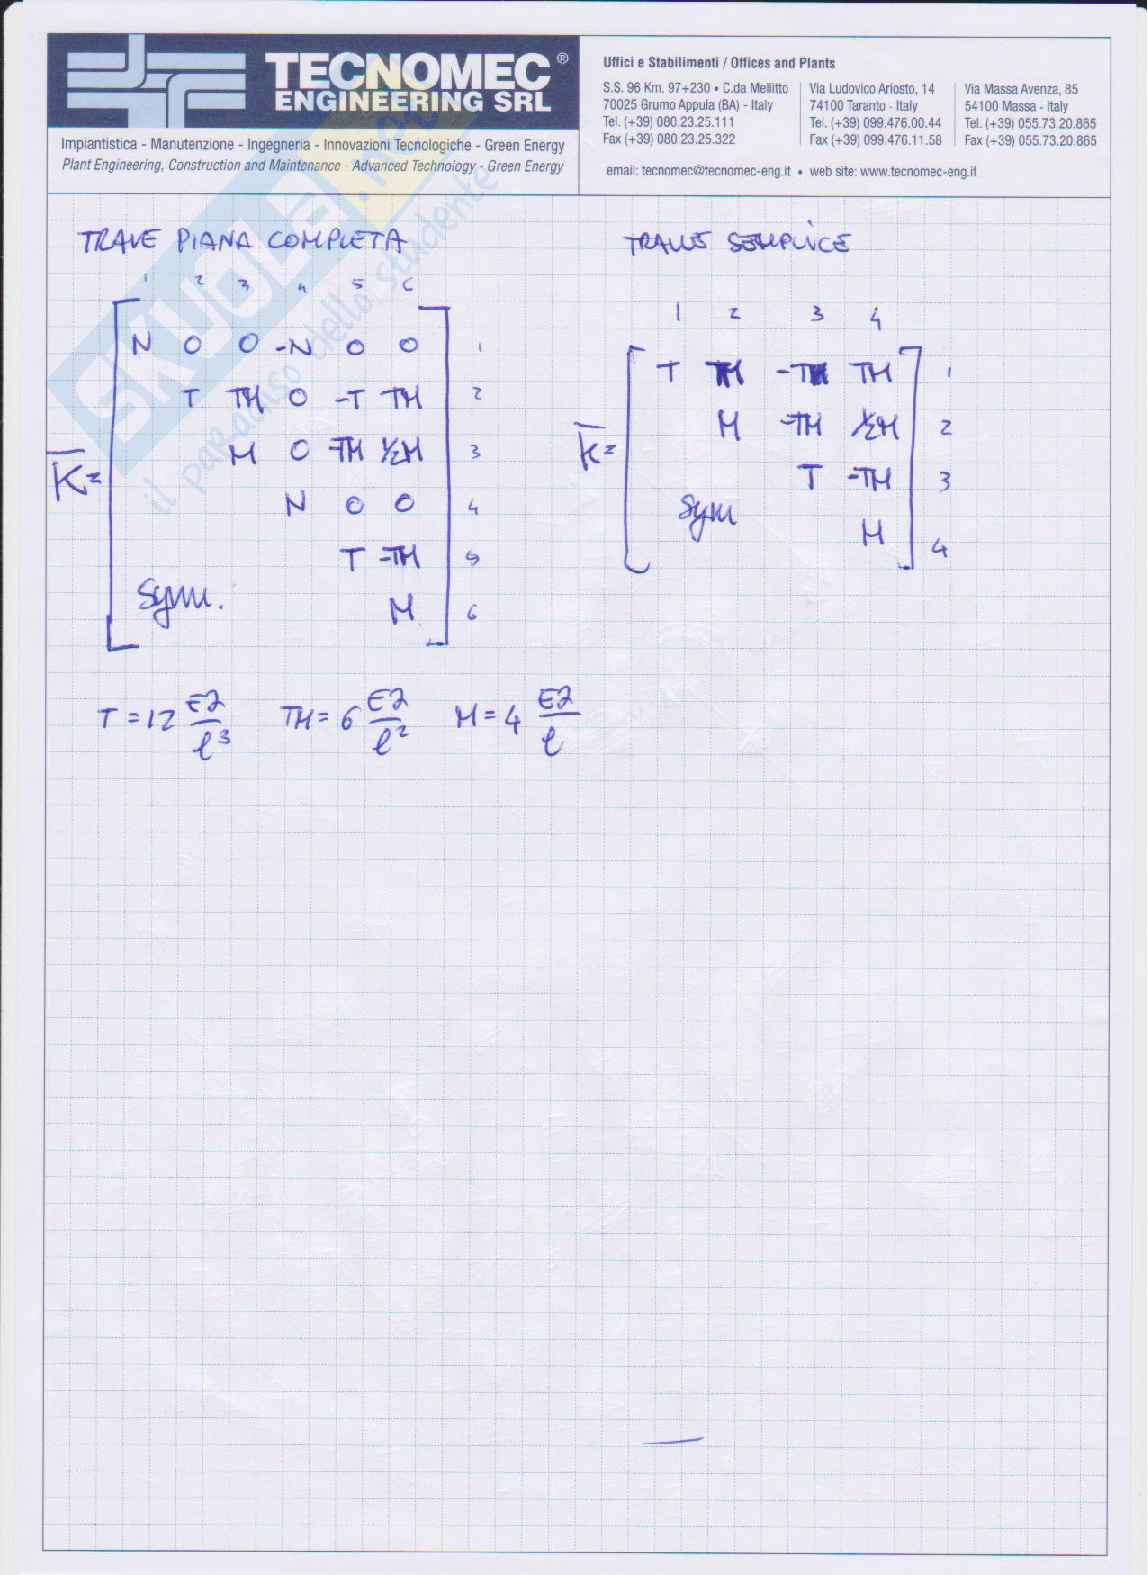 TECNOMEC®
ENGINEERING SRL
Impiantistica - Manutenzione - Ingegneria - Innovazioni Tecnologiche - Green Energy
Plant Engineering, Construction and Maintenance - Advanced Technology - Green Energy
Uffici e Stabilimenti / Offices and Plants
S.S. 96 Km. 97+230 • C.da Mellitto
70025 Grumo Appula (BA) - Italy
Tel. (+39) 080.23.25.111
Fax (+39) 080.23.25.322
Via Ludovico Ariosto, 14
74100 Taranto - Italy
Tel. (+39) 099.476.00.44
Fax (+39) 099.476.11.58
Via Massa Avenza, 85
54100 Massa - Italy
Tel. (+39) 055.73.20.865
Fax (+39) 055.73.20.865
email: tecnomec@tecnomec-eng.it • web site: www.tecnomec-eng.it
SKUOLA.net
il paradiso dello studente
TRAVE PIANA COMPLETA
1 2 3 4 5 6
N 0 0 -N 0 0 1
T TM 0 -T TM 2
M 0 -TM 1/2M 3
K̅=
N 0 0 4
T -TM 5
Symm. M 6
T = 12 EJ/l³ TM = 6 EJ/l² M = 4 EJ/l
TRAVE SEMPLICE
1 2 3 4
T TM -T TM 1
M -TM 1/2M 2
K̅=
T -TM 3
Sym M 4